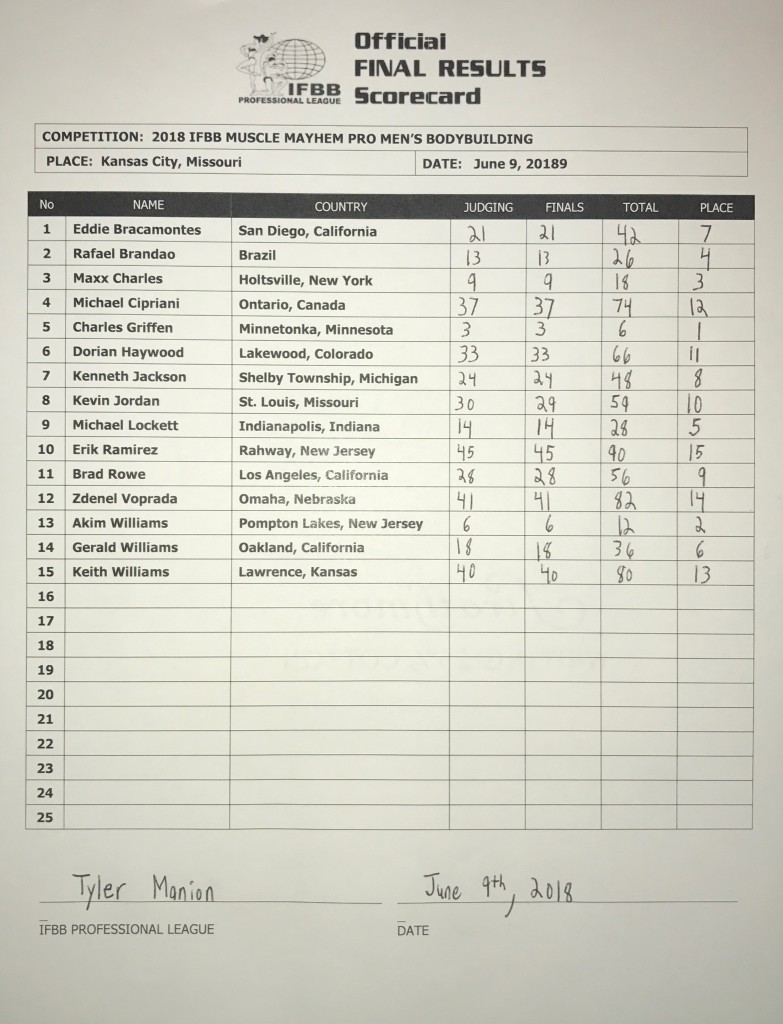 Official
FINAL RESULTS
Scorecard
IFBB
PROFESSIONAL LEAGUE
COMPETITION: 2018 IFBB MUSCLE MAYHEM PRO MEN'S BODYBUILDING
PLACE: Kansas City, Missouri DATE: June 9, 20189
No NAME COUNTRY JUDGING FINALS TOTAL PLACE
1 Eddie Bracamontes San Diego, California 21 21 42 7
2 Rafael Brandao Brazil 13 13 26 4
3 Maxx Charles Holtsville, New York 9 9 18 3
4 Michael Cipriani Ontario, Canada 37 37 74 12
5 Charles Griffen Minnetonka, Minnesota 3 3 6 1
6 Dorian Haywood Lakewood, Colorado 33 33 66 11
7 Kenneth Jackson Shelby Township, Michigan 24 24 48 8
8 Kevin Jordan St. Louis, Missouri 30 29 59 10
9 Michael Lockett Indianapolis, Indiana 14 14 28 5
10 Erik Ramirez Rahway, New Jersey 45 45 90 15
11 Brad Rowe Los Angeles, California 28 28 56 9
12 Zdenel Voprada Omaha, Nebraska 41 41 82 14
13 Akim Williams Pompton Lakes, New Jersey 6 6 12 2
14 Gerald Williams Oakland, California 18 18 36 6
15 Keith Williams Lawrence, Kansas 40 40 80 13
16
17
18
19
20
21
22
23
24
25
Tyler Manion June 9th, 2018
IFBB PROFESSIONAL LEAGUE DATE